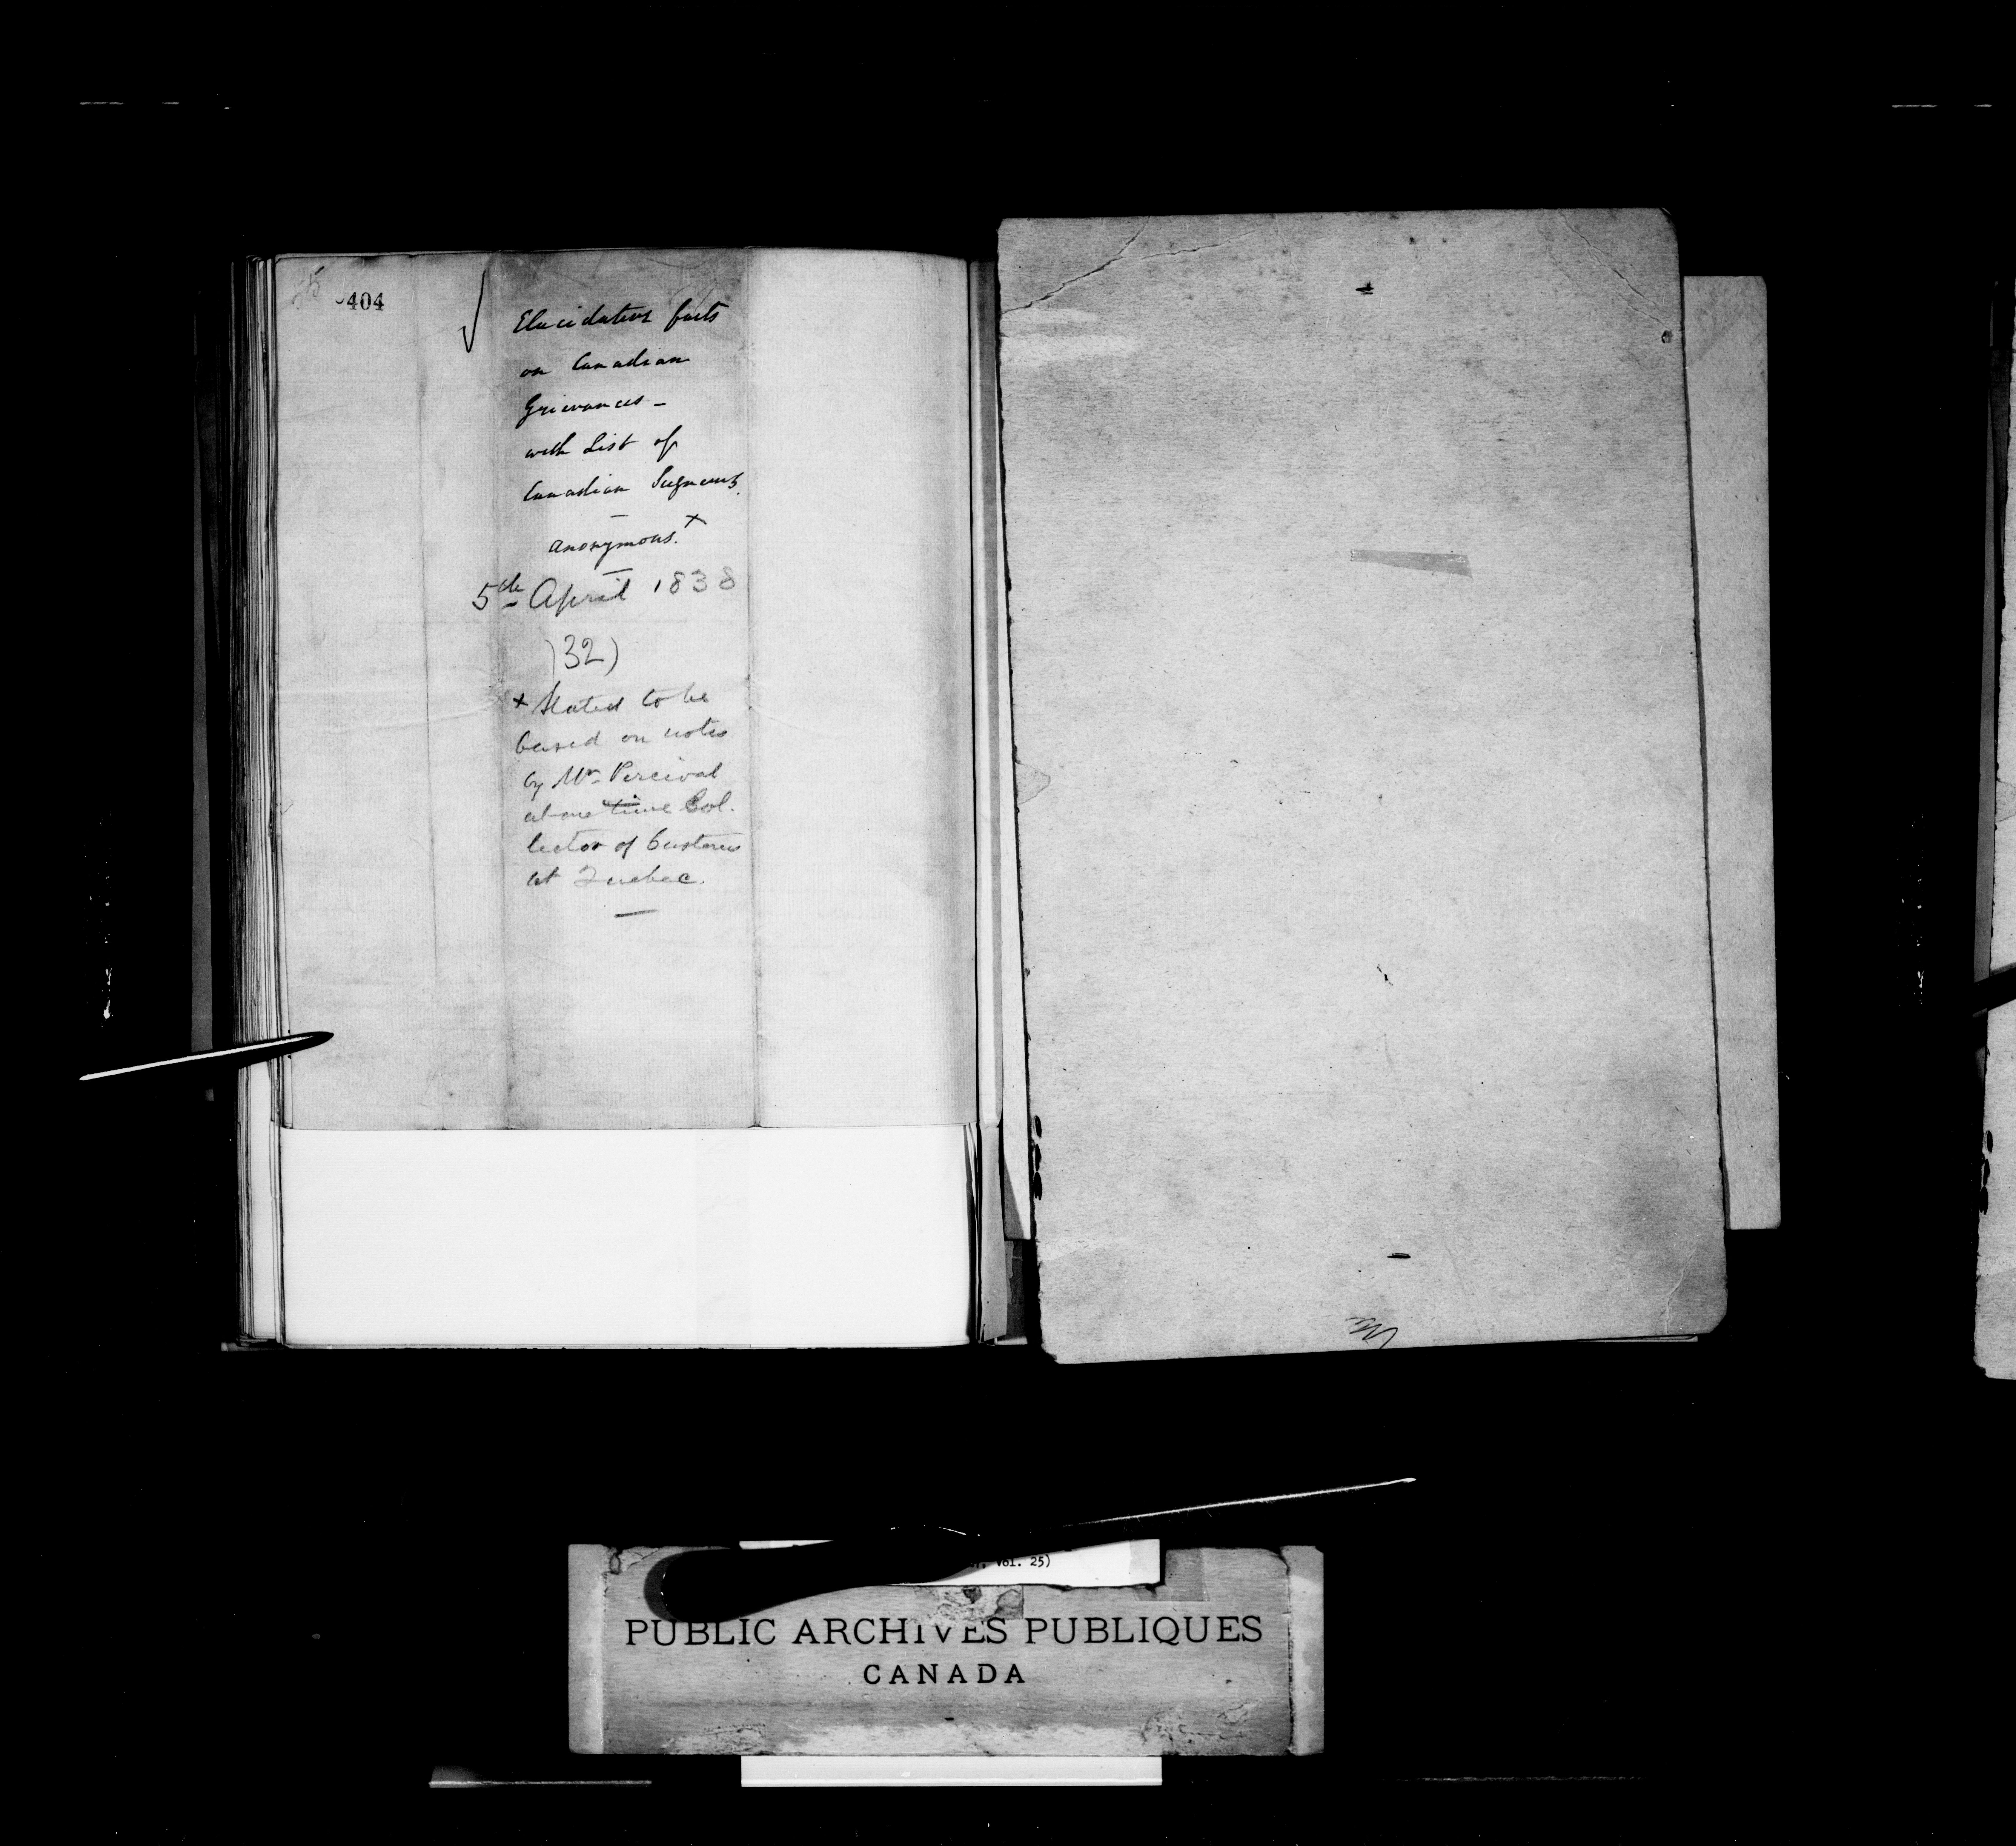 404
Elucidative facts
on Canadian
Grievances -
with List of
Canadian
anonymous. x
5th April 1838
(32)
x Stated to be
based on notes
by Mr. Percival
at one time Col.
lector of Customs
at Quebec.
Vol. 25)
PUBLIC ARCHIVES PUBLIQUES
CANADA